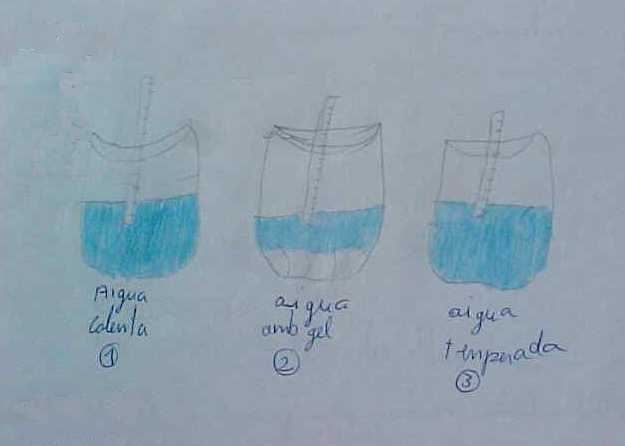 Aigua
Calenta
1
aigua
amb gel
2
aigua
temperada
3